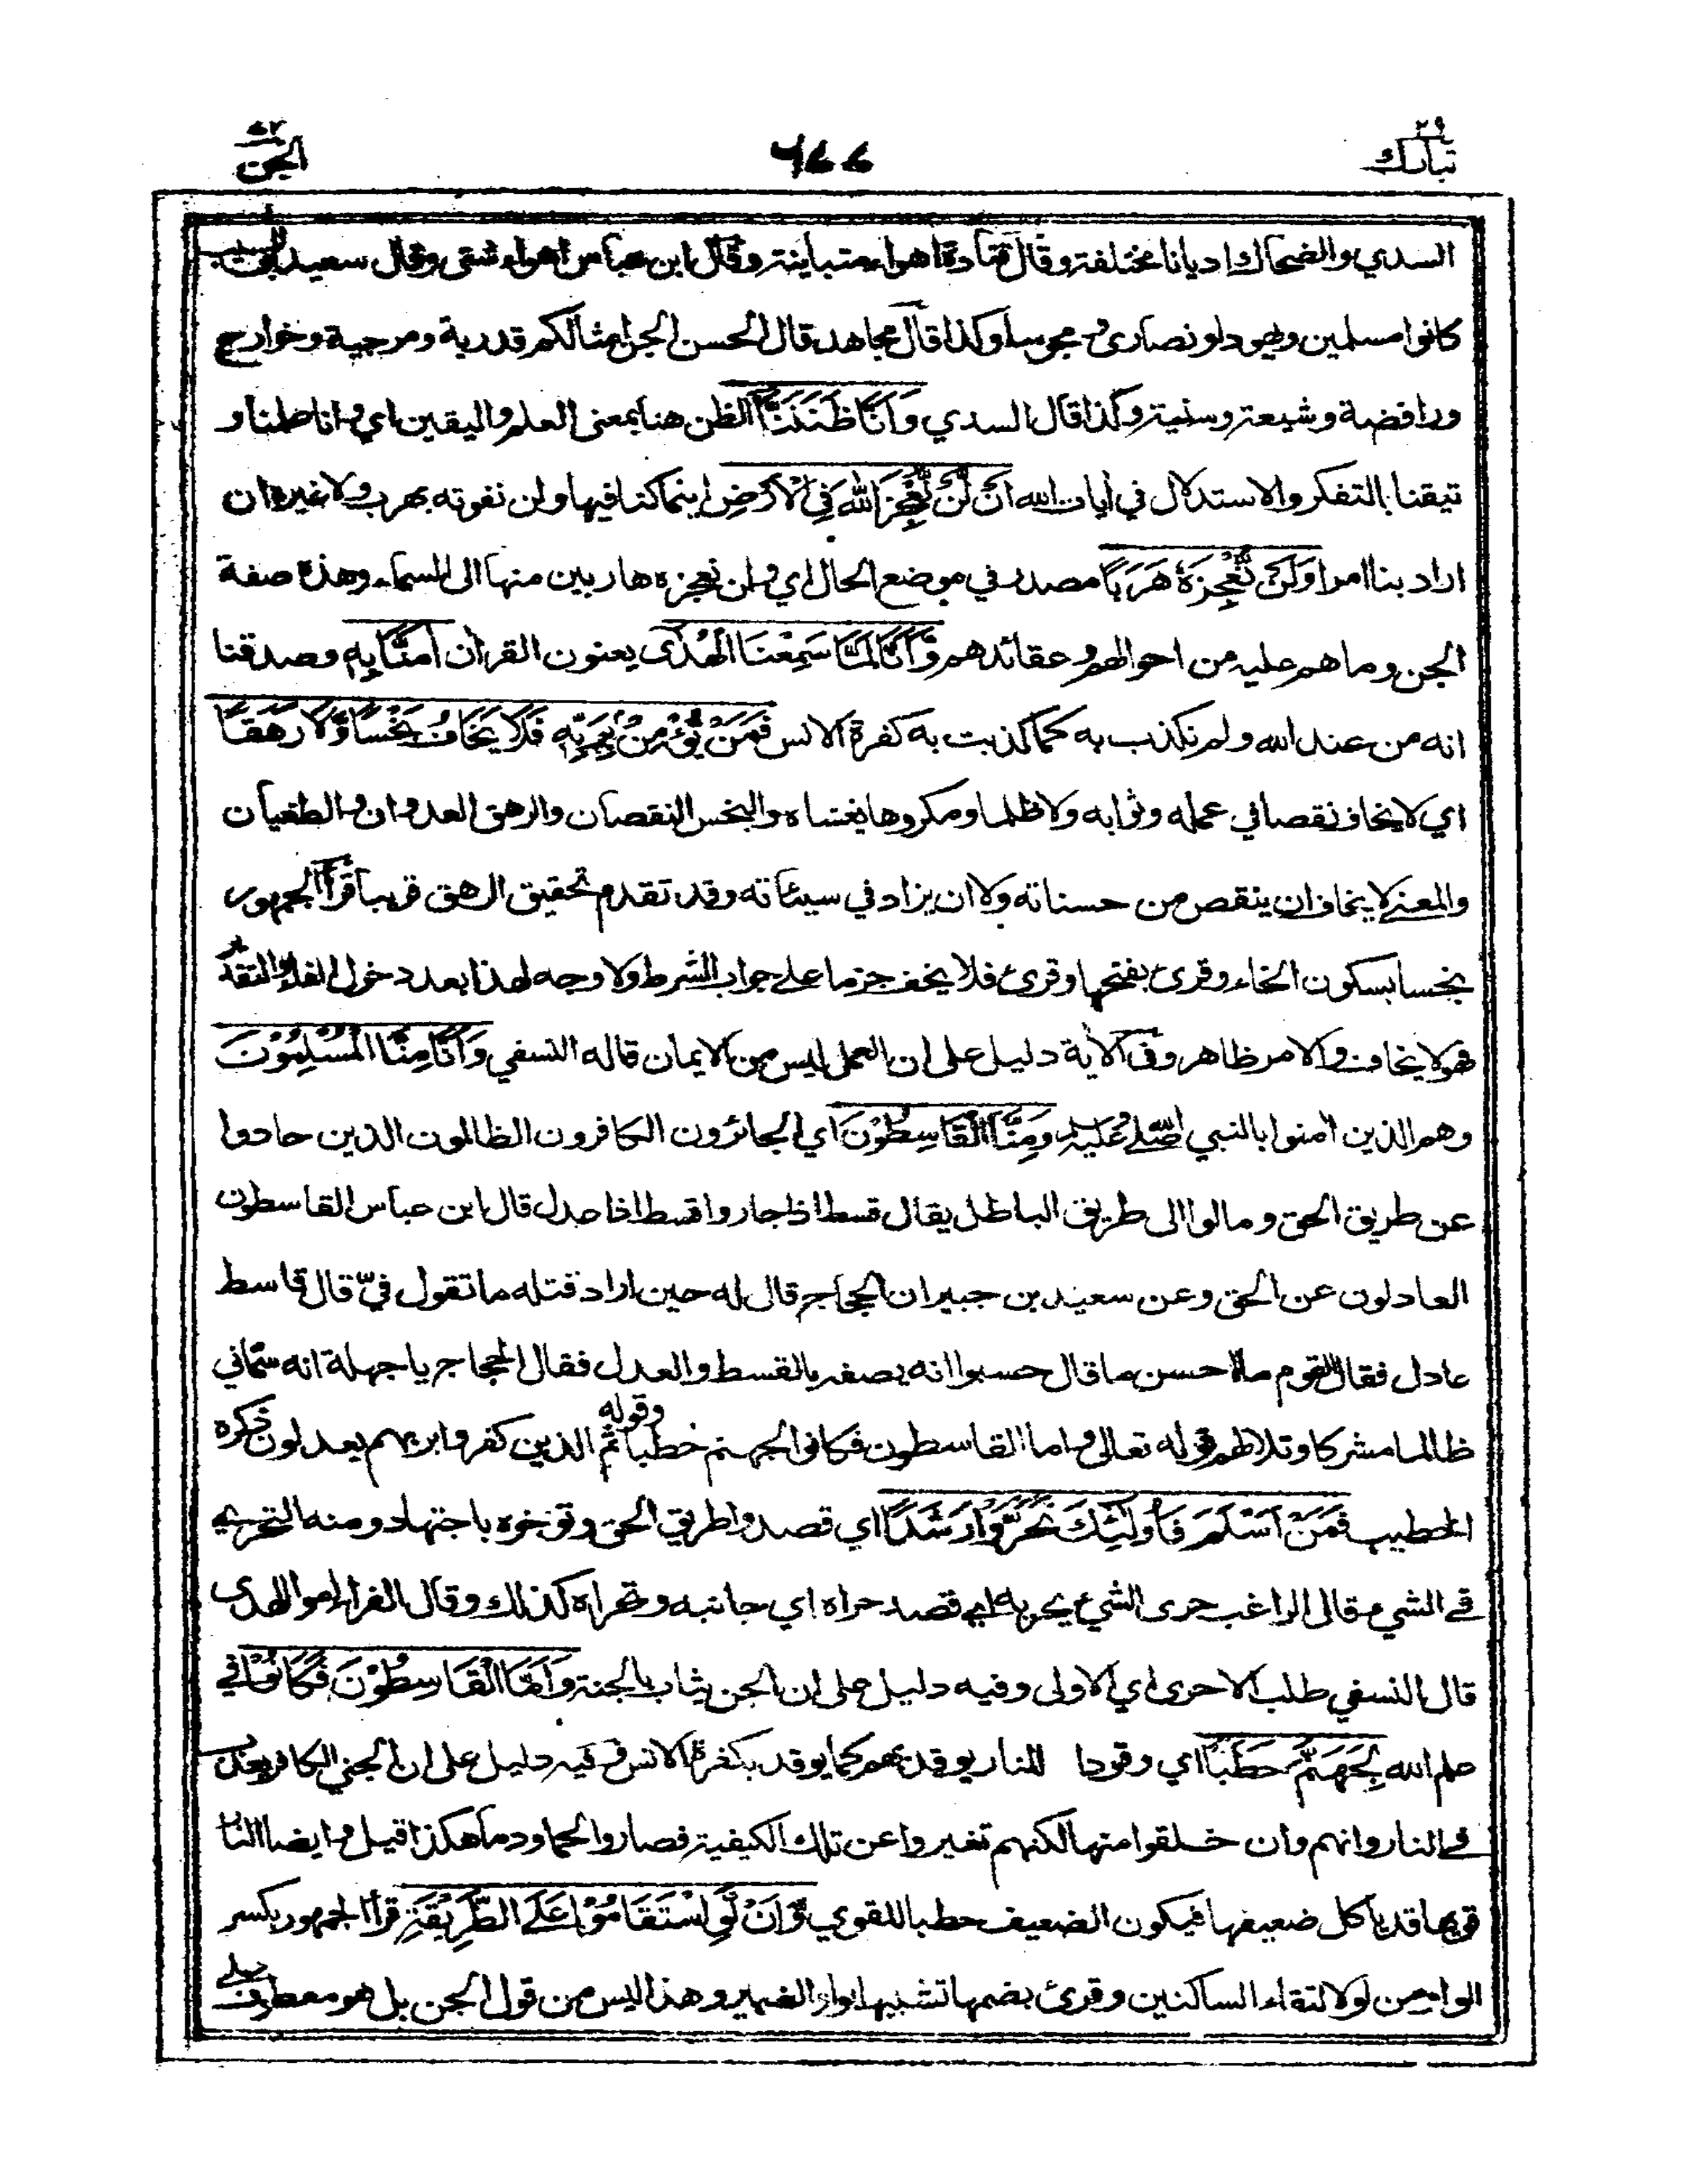 تبارك ٢٩
٦٧٧
الجن ٧٢
السدي والضحاك اديانا مختلفة وقال قتادة اهواء متباينة وقال ابن عباس اهواء شتى وقال سعيد بن المسيب
كانوا مسلمين ويهودا ونصارى ومجوسا وكذا قال مجاهد قال الحسن الجن امثالكم قدرية ومرجية وخوارج
ورافضة وشيعة وسنية وكذا قال السدي وَأَنَّا ظَنَنَّا الظن هنا بمعنى العلم واليقين اي وانا علمنا و
تيقنا بالتفكر والاستدلال في ايات الله أَنْ لَّنْ نُّعْجِزَ اللهَ فِي الْأَرْضِ اينما كنا فيها ولن نفوته بهرب ولا غيره ان
اراد بنا امرا وَلَنْ نُّعْجِزَهُ هَرَبًا مصدر في موضع الحال اي ولن نعجزه هاربين منها الى السماء وهذه صفة
الجن وما هم عليه من احوالهم وعقائدهم وَّأَنَّا لَمَّا سَمِعْنَا الْهُدٰى يعنون القرأن اٰمَنَّا بِهٖ وصدقنا
انه من عند الله ولم نكذب به كما كذبت به كفرة الانس فَمَنْ يُّؤْمِنْ بِرَبِّهٖ فَلَا يَخَافُ بَخْسًا وَّلَا رَهَقًا
اي لا يخاف نقصا في عمله وثوابه ولا ظلما ومكروها يغشاه والبخس النقصان والرهق العدوان والطغيان
والمعنى لا يخاف ان ينقص من حسناته ولا ان يزاد في سيئاته وقد تقدم تحقيق الرهق قريبا قرأ الجمهور
بخسا بسكون الخاء وقرئ بفتحها وقرئ فلا يخف جزما على جواب الشرط ولا وجه لهذا بعد دخول الفاء والتقدير
فهو لا يخاف والامر ظاهر وفي الاية دليل على ان العمل ليس من الايمان قاله النسفي وَأَنَّا مِنَّا الْمُسْلِمُوْنَ
وهم الذين امنوا بالنبي صلى الله عليه وسلم وَمِنَّا الْقَاسِطُوْنَ اي الجائرون الكافرون الظالمون الذين حادوا
عن طريق الحق ومالوا الى طريق الباطل يقال قسط اذا جار واقسط اذا عدل قال ابن عباس القاسطون
العادلون عن الحق وعن سعيد بن جبير ان الحجاج قال له حين اراد قتله ما تقول فيّ قال قاسط
عادل فقال القوم ما احسن ما قال حسبوا انه يصفه بالقسط والعدل فقال الحجاج يا جهلة انه سمّاني
ظالما مشركا وتلا لهم قوله تعالى واما القاسطون فكانوا لجهنم حطبا وقوله ثم الذين كفروا بربهم يعدلون ذكره
الخطيب فَمَنْ اَسْلَمَ فَاُولٰئِكَ تَحَرَّوْا رَشَدًا اي قصدوا طريق الحق وتوخوه باجتهاد ومنه التحري
في الشيء قال الراغب حرى الشيء يحريه اي قصد حراه اي جانبه وتحراه كذلك وقال الفراء اموا الهدى
قال النسفي طلب الاحرى اي الاولى وفيه دليل على ان الجن يثاب بالجنة وَأَمَّا الْقَاسِطُوْنَ فَكَانُوْا في
علم الله لِجَهَنَّمَ حَطَبًا اي وقودا للنار يوقد بهم كما يوقد بكفرة الانس وفيه دليل على ان الجني الكافر يعذب
في النار وانهم وان خلقوا منها لكنهم تغيروا عن تلك الكيفية فصاروا لحما ودما هكذا قيل وايضا النار
قويها قد يأكل ضعيفها فيكون الضعيف حطبا للقوي وَّأَنْ لَّوِ اسْتَقَامُوْا عَلَى الطَّرِيْقَةِ قرأ الجمهور بكسر
الواو من لو لالتقاء الساكنين وقرئ بضمها تشبيها بواو الضمير وهذا ليس من قول الجن بل هو معطوف على